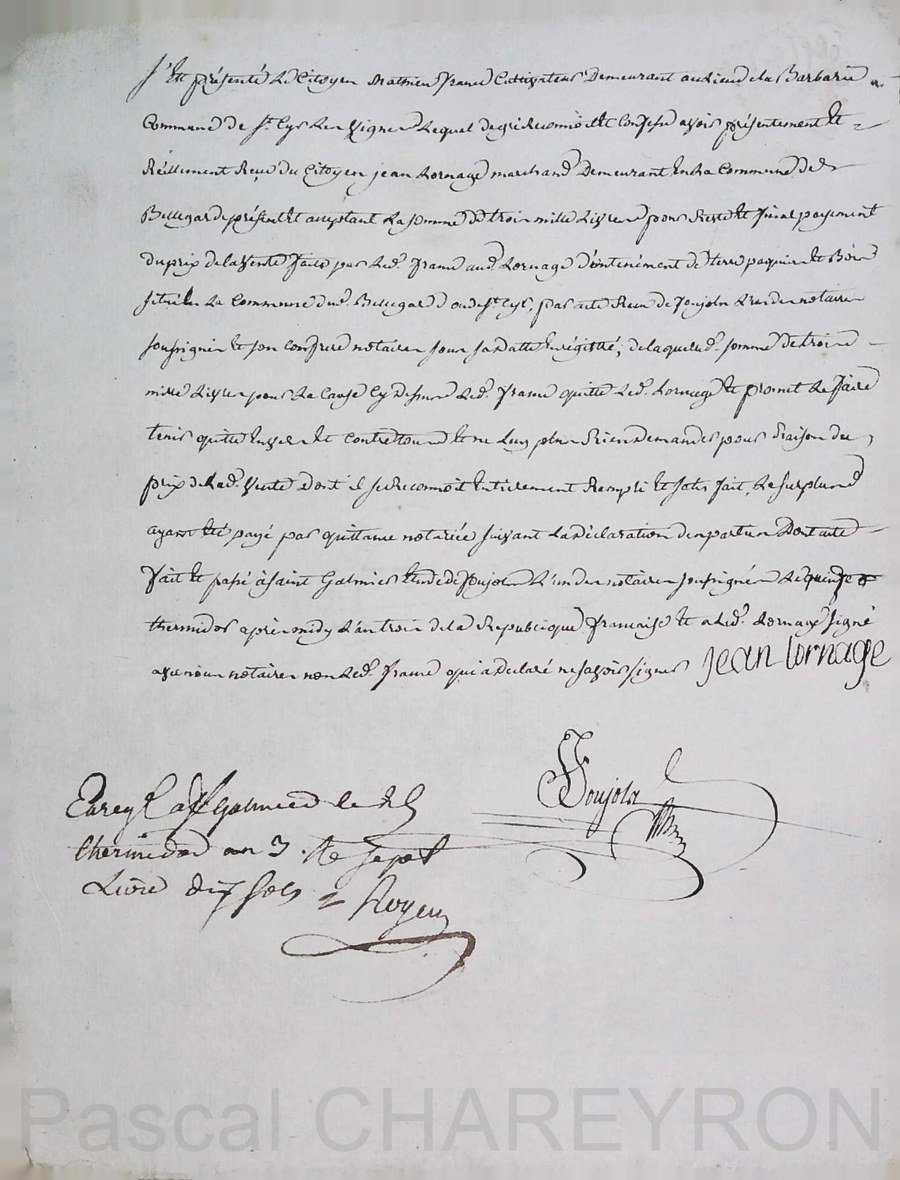 S'est présenté Le Citoyen mathieu france Cultivateur Demeurant au Lieu de la Barbarie
Commune de St. Cyr Les Vignes Lequel de gré Reconnoit et Confesse avoir présentement et
Réellement Reçu du Citoyen jean Lornage marchand Demeurant En La Commune de
Bellegarde présent et acceptant La somme de trois mille Livres pour Reste et final payement
du prix de la vente faite par Led. france aud. Lornage d'un tenément de terre paquier et Bois
situé En La Commune dud. Bellegarde ou de St. Cyr, par acte Reçu de Poujola L'un des notaires
soussignés et son confrere notaires sous sa datte Enregistré; de laquelle d. somme de trois
mille Livres pour La Cause Cy Dessus Led. france quitte Led. Lornage et promet Le faire
tenir quitte Envers Et Contre tous Et ne Luy plus Rien demander pour Raison du
prix de Lad. vente dont il se Reconnoit Entierement Rempli Et satisfait, Le surplus
ayant Eté payé par quittance notariée suivant La Déclaration des parties Dont acte
fait Et passé à Saint Galmier Etude de Poujola L'un des notaires soussignés Le quinze
thermidor après midy L'an trois de la Republique française Et a Led. Lornage signé
avec nous notaires non Led. france qui a déclaré ne savoir signer jean lornage
Poujola
Enreg. a St Galmier le 25
thermidor an 3. Re sept
Livres dix sols
Royer
Pascal CHAREYRON